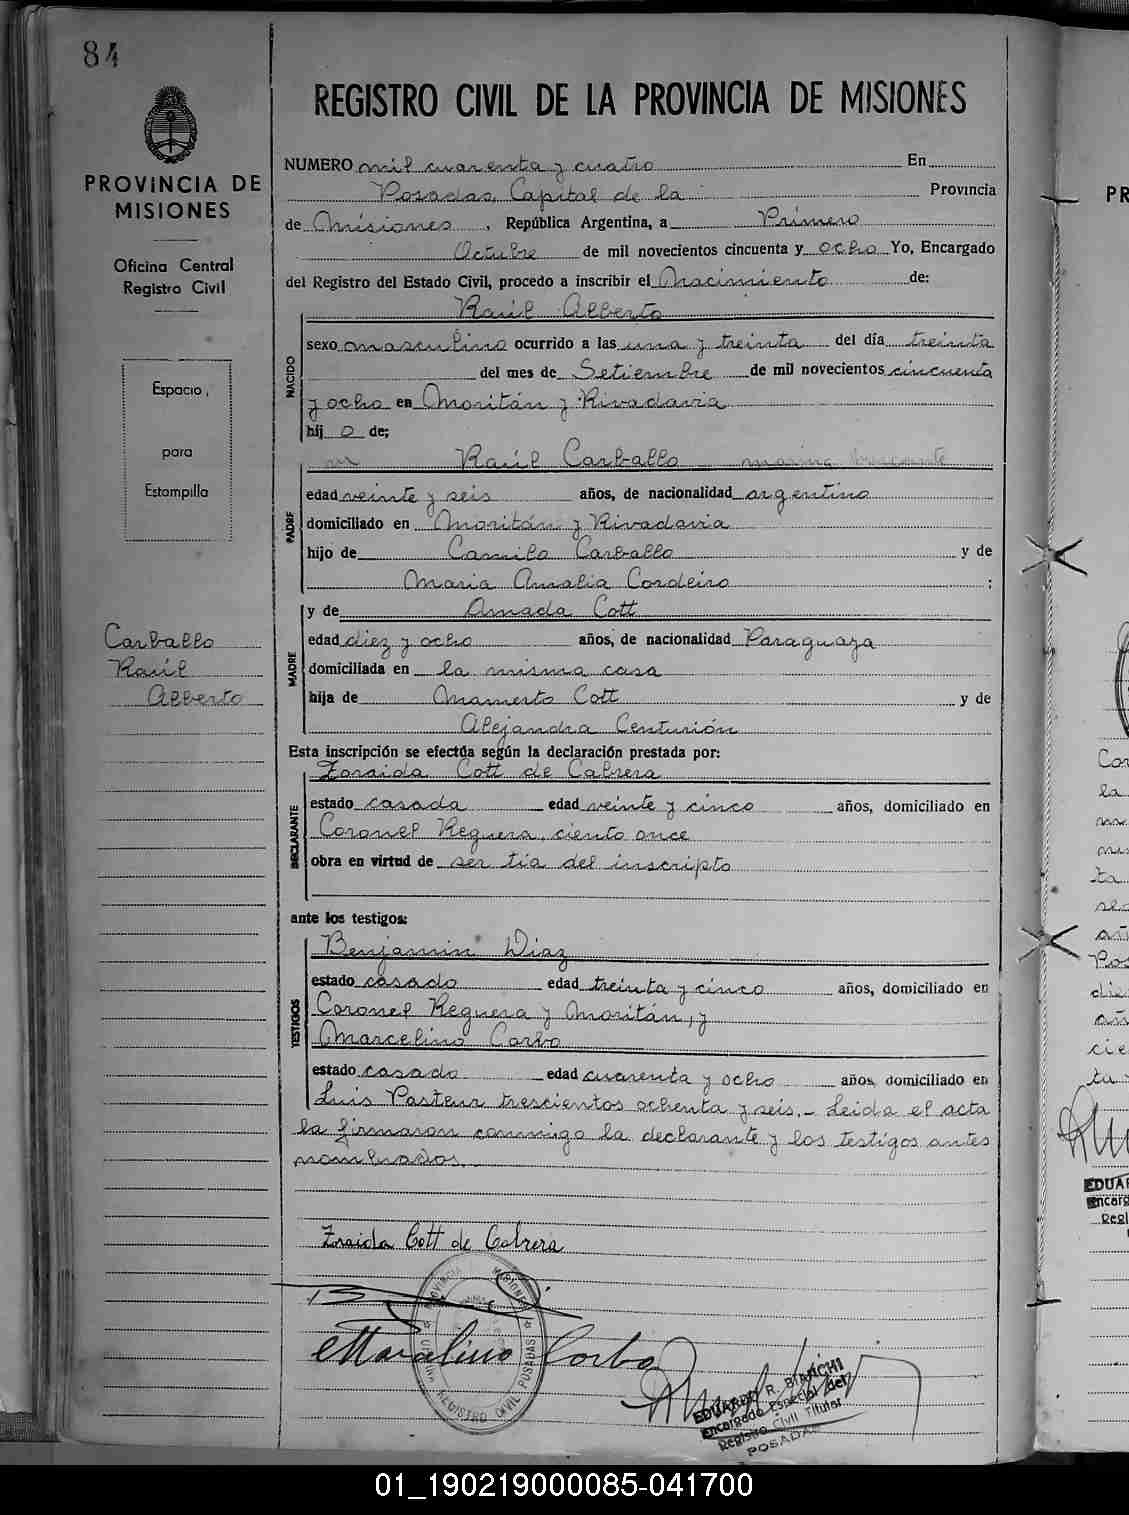 84
PROVINCIA DE
MISIONES
Oficina Central
Registro Civil
Espacio
para
Estampilla
Carballo
Raúl
Alberto
REGISTRO CIVIL DE LA PROVINCIA DE MISIONES
NUMERO mil cuarenta y cuatro En
Posadas, Capital de la Provincia
de Misiones, República Argentina, a Primero
Octubre de mil novecientos cincuenta y ocho Yo, Encargado
del Registro del Estado Civil, procedo a inscribir el Nacimiento de:
Raúl Alberto
NACIDO
sexo masculino ocurrido a las una y treinta del día treinta
del mes de Setiembre de mil novecientos cincuenta
y ocho en Moritán y Rivadavia
hij o de;
Raúl Carballo
PADRE
edad veinte y seis años, de nacionalidad argentino
domiciliado en Moritán y Rivadavia
hijo de Camilo Carballo y de
Maria Amalia Cordeiro :
y de Amada Cott
MADRE
edad diez y ocho años, de nacionalidad Paraguaya
domiciliada en la misma casa
hija de Mamerto Cott y de
Alejandra Centurión
Esta inscripción se efectúa según la declaración prestada por:
Zoraida Cott de Cabrera
DECLARANTE
estado casada edad veinte y cinco años, domiciliado en
Coronel Reguera, ciento once
obra en virtud de ser tia del inscripto
ante los testigos:
Benjamin Diaz
TESTIGOS
estado casado edad treinta y cinco años, domiciliado en
Coronel Reguera y Moritán, y
Marcelino Corbo
estado casado edad cuarenta y ocho años, domiciliado en
Luis Pasteur trescientos ochenta y seis.- Leida el acta
la firmaron conmigo la declarante y los testigos antes
nombrados.
Zoraida Cott de Cabrera
Marcelino Corbo
PROVINCIA MISIONES
REGISTRO CIVIL POSADAS
EDUARDO R. BIANCHI
Encargado Especial del
Registro Civil Titular
POSADAS
PR
Cor
la
ta
Pos
die
cie
EDUAR
Encarg
Regi
01_190219000085-041700